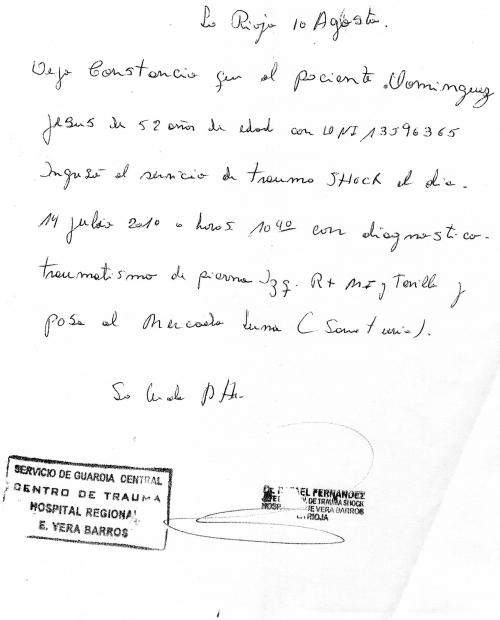 La Rioja 10 Agosto.
Dejo Constancia que el paciente Dominguez
Jesus de 52 años de edad con DNI 13596365
Ingresó al servicio de trauma SHock el dia.
14 julio 2010 a horas 10 40 con diagnostico.
traumatismo de pierna Izq. R+ MI y Tobillo y
pasa al Mercado Luna ( Sanatorio).
SERVICIO DE GUARDIA CENTRAL
CENTRO DE TRAUMA
HOSPITAL REGIONAL
E. VERA BARROS
FERNANDEZ
DE TRAUMA SHOCK
VERA BARROS
RIOJA